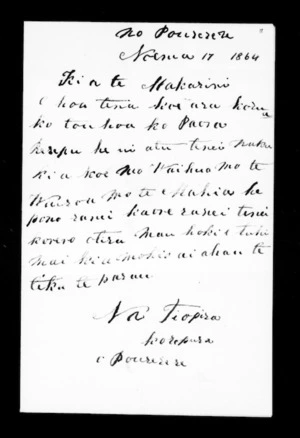 no Pourerere
Noema 17 1864
Kia te Makarini
E hoa tena koe ara korua
ko tou hoa ko Paora
kerepu he ui atu tenei naku
kia koe mo Waihua mo te
Wairoa mo te Mahia he
pono ranei kaore ranei tenei
korero otira mau hoki e tuhi
mai kia mohio ai ahau te
tika te parau
Na Tiopira
o Pourerere